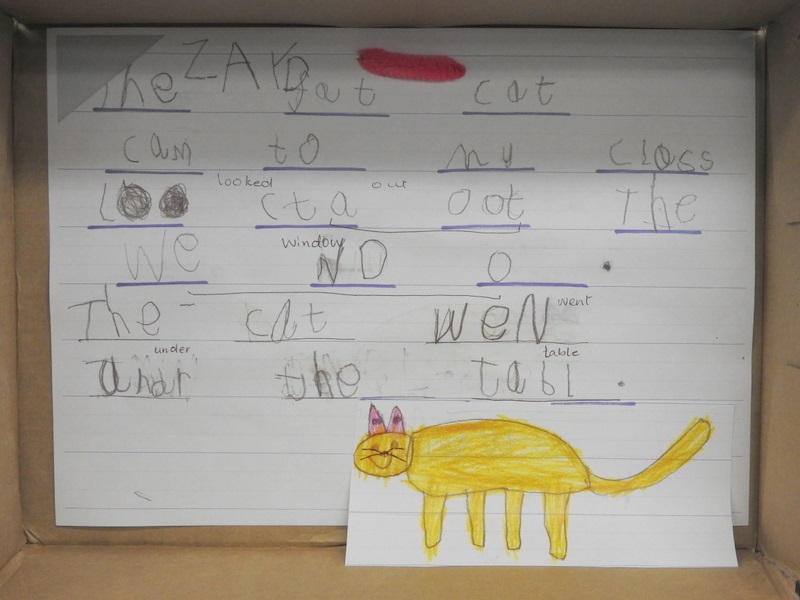 ZAYD
The fat cat
cam to my class
looked out
Loo cta oot The
window
We ND o .
The cat weN went
under table
undr the tabl .